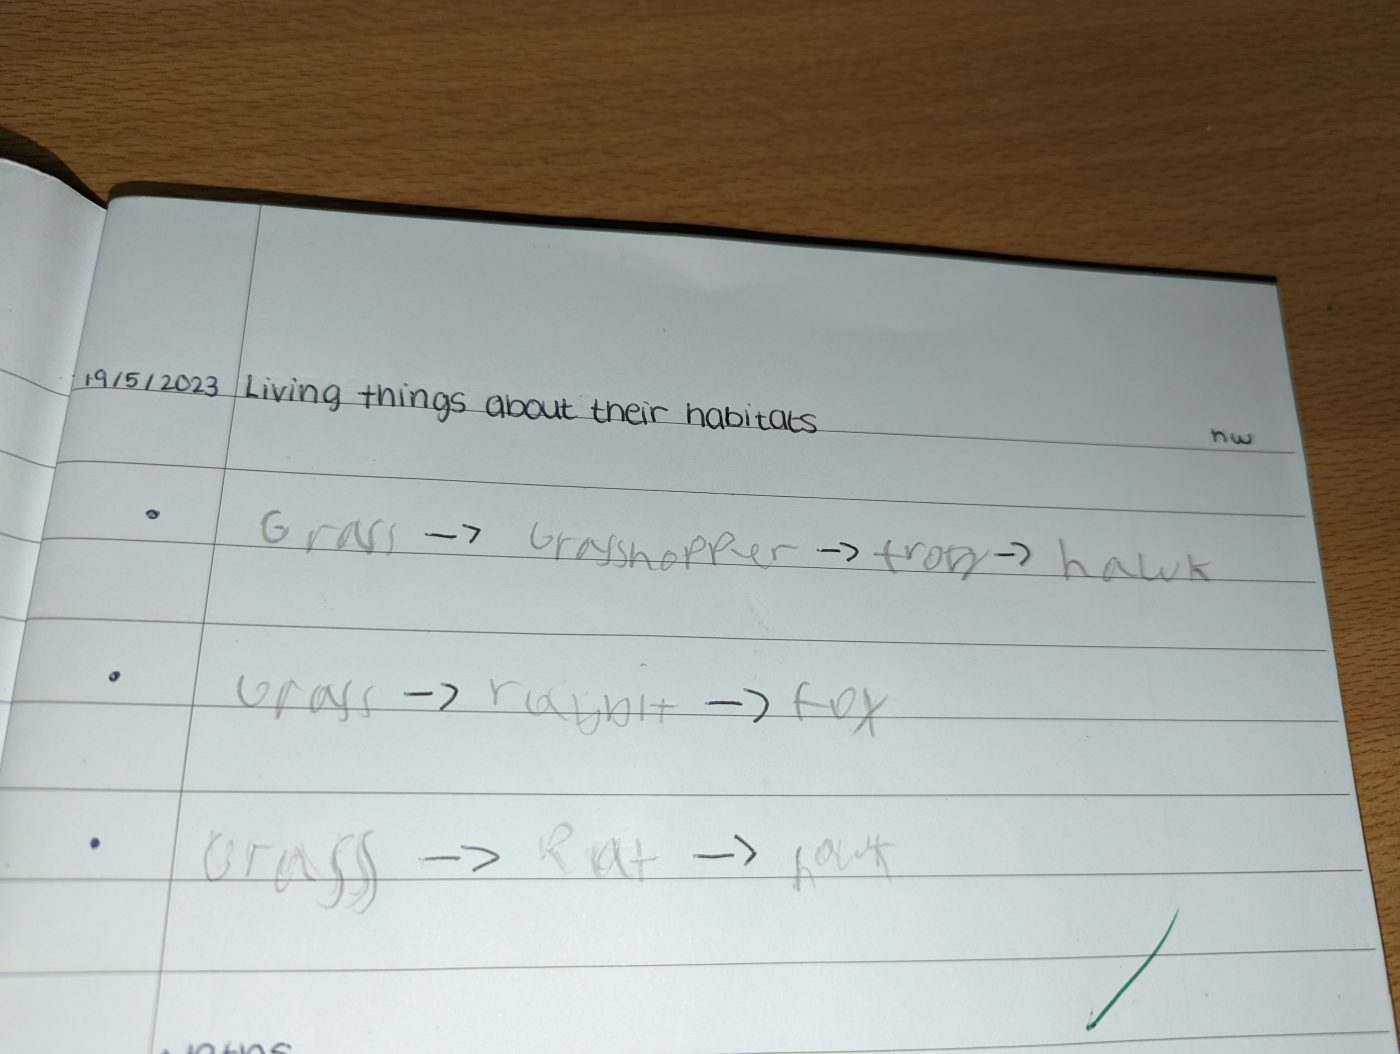 19/5/2023 Living things about their habitats
nw
• Grass -> Grasshopper -> frog -> hawk
• Grass -> rabbit -> fox
• Grass -> Rat -> hawk